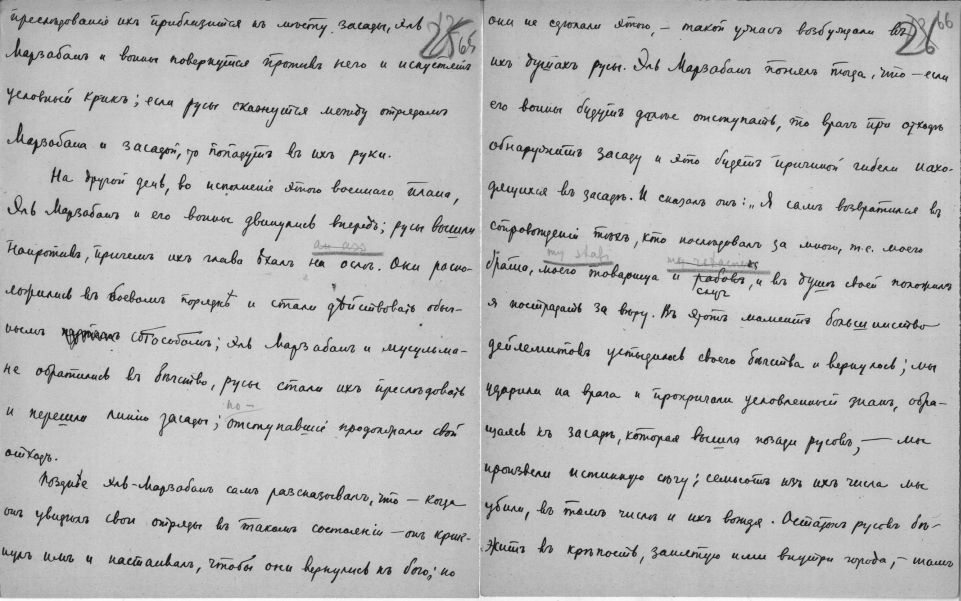 преслѣдованіе ихъ приблизится къ мѣсту засады, яль
Марзабанъ и воины повернутся противъ него и испустятъ
условный крикъ; если русы скажутся между отрядомъ
Марзабана и засадой, то попадутъ въ ихъ руки.
На другой день, во исполненіе этого военнаго плана,
Яль Марзабанъ и его воины двинулись впередъ; русы вышли
an ass
напротивъ, причемъ ихъ глава ѣхалъ на ослѣ. Они распо-
ложились въ боевомъ порядкѣ и стали дѣйствовать обыч-
нымъ способомъ; яль Марзабанъ и мусульма-
не обратились въ бѣгство, русы стали ихъ преслѣдовать
по-
и перешли линію засады; отступавшіе продолжали свой
отходъ.
Позднѣе яль-Марзабанъ самъ разсказывалъ, что — когда
онъ увидѣлъ свои отряды въ такомъ состояніи — онъ крик-
нулъ имъ и настаивалъ, чтобы они вернулись къ бою; но
66
они не сдѣлали этого, — такой ужасъ возбуждали въ
ихъ душахъ русы. Яль Марзабанъ понялъ тогда, что — если
его воины будутъ далѣе отступать, то врагъ при отходѣ
обнаружитъ засаду и это будетъ причиной гибели нахо-
дящихся въ засадѣ. И сказалъ онъ: „Я самъ возвратился въ
сопровожденіи тѣхъ, кто послѣдовалъ за мною, т.е. моего
my staff my retainers
брата, моего товарища и рабовъ, и въ душѣ своей положилъ
слуг
я пострадать за вѣру. Въ этотъ моментъ большинство
дейлемитовъ устыдилось своего бѣгства и вернулось; мы
ударили на врага и прокричали условленный знакъ, обра-
щаясь къ засадѣ, которая вышла позади русовъ, — мы
произвели истинную сѣчу; семьсотъ изъ ихъ числа мы
убили, въ томъ числѣ и ихъ вождя. Остатокъ русовъ бѣ-
житъ въ крѣпость, занятую ими внутри города, — тамъ